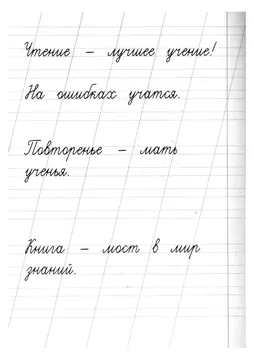 Чтение – лучшее учение!
На ошибках учатся.
Повторенье – мать
ученья.
Книга – мост в мир
знаний.